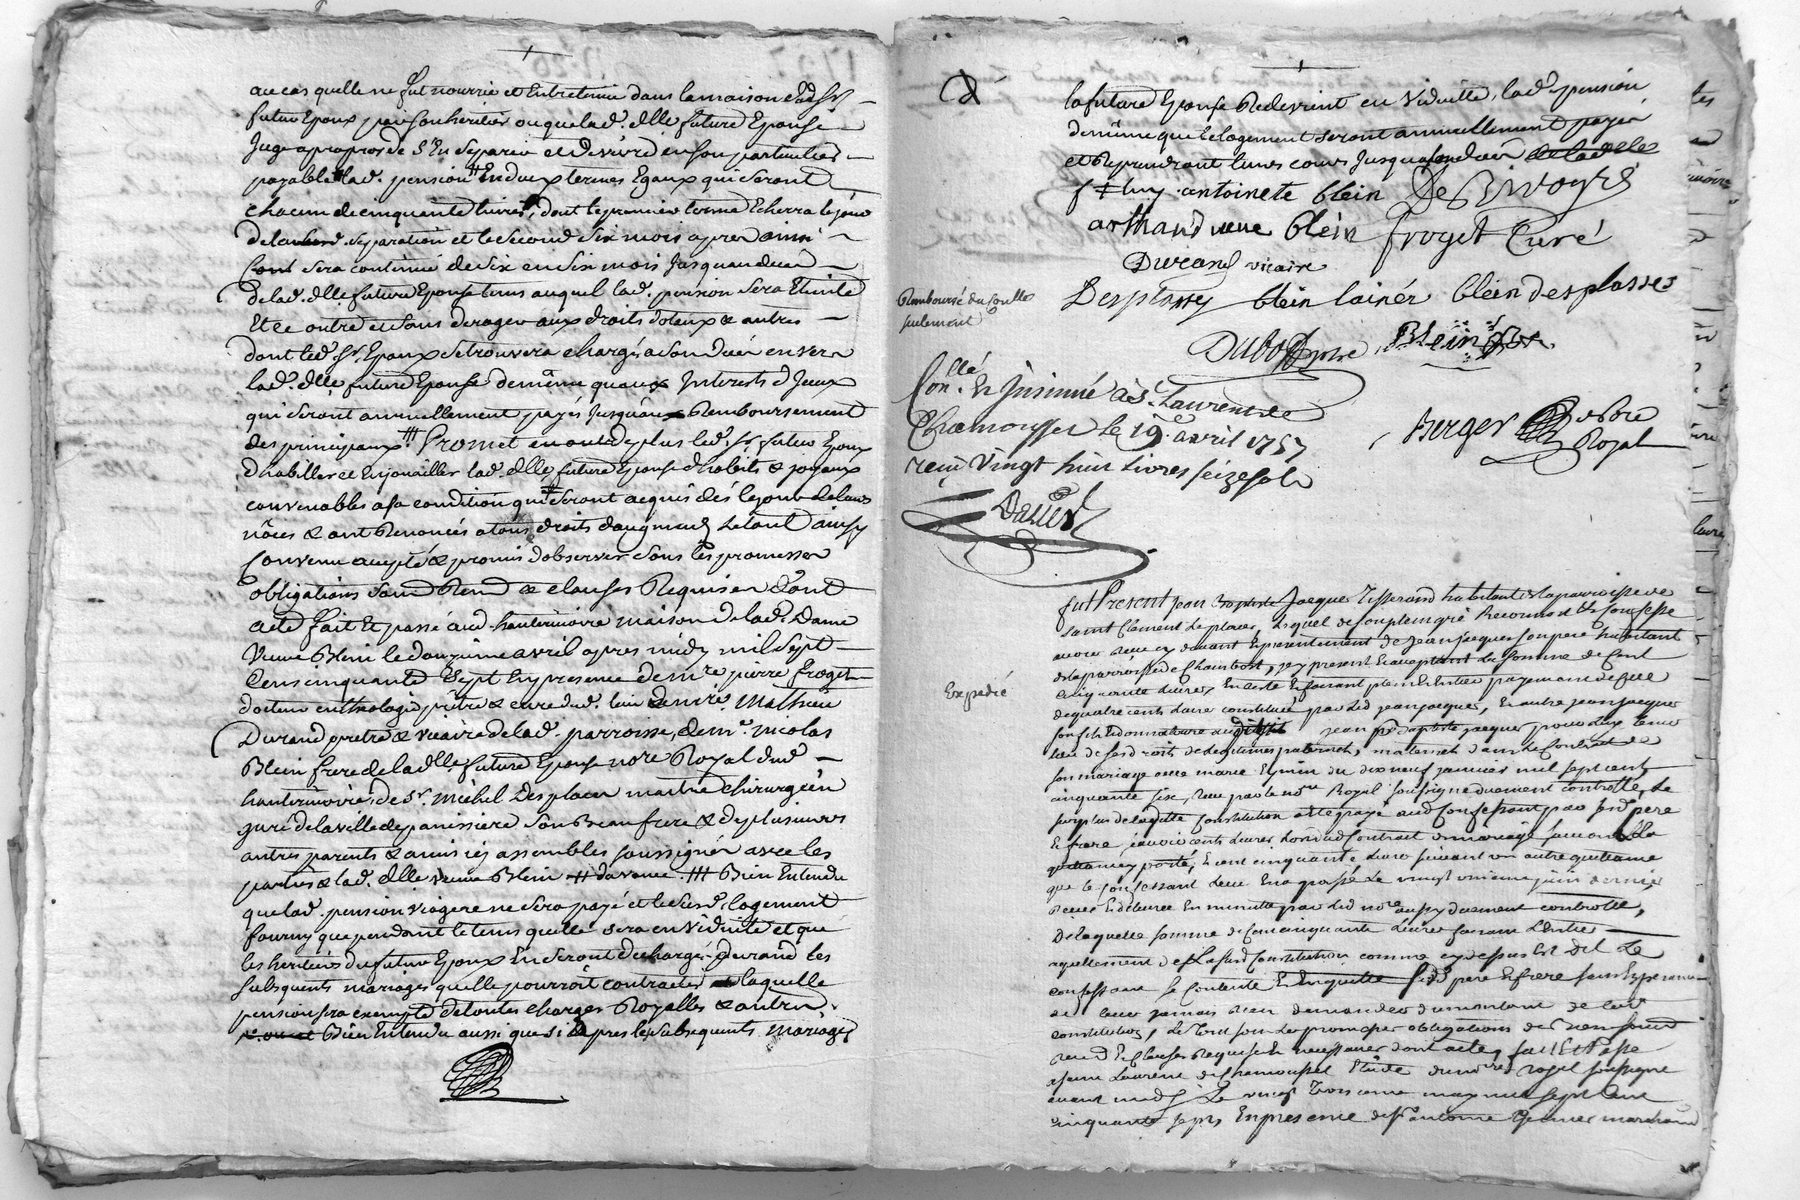 au cas quelle ne fut nourrie et Entretenüe dans la maison dud. Sr.
futur Epoux par son heritier ou que lad. dlle. future Epouse
Juge a propos de s'En separer et de vivre en son particulier
payable lad. pension # En deux termes Egaux qui seront
chacun de cinquante livres, dont le premier terme Echerra le jour
de la separation et le second six mois apres ainsi
sera continué de six en six mois Jusqu'au deces
de lad. dlle. future Epouse tems auquel lad. pension sera Eteinte
Et ce outre et sans deroger aux droits dotaux & autres
dont led. Sr. Epoux se trouvera chargé a son deces envers
lad. dlle. future Epouse de même quaux Interests d'Iceux
qui seront annuellement payés Jusquau Remboursement
des principaux. ### Promet en outre de plus led. Sr. futur Epoux
d'habiller et Enjoailler lad. dlle. future Epouse d'habits & joyaux
convenables a sa condition qui seront acquis dès le jour de leurs
nôces & ont Renoncés a tous droits d'augment Le tout ainsy
convenu accepté & promis d'observer sous les promesses
obligations soumd. Renond. & clauses Requises Dont
acte fait Et passé aud. hauterivoire maison de lad. Dame
Veuve Blein le douzieme avril apres midy mil sept
Cens cinquante Sept En presence de mre. pierre froget
docteur en theologie prêtre & curé dud. lieu de mre. Mathieu
Durand prêtre & vicaire de lad. parroisse, de me. nicolas
Blein frere de lad. dlle. future Epouse nore. Royal dud.
hauterivoire, de Sr. michel Desplaces maitre chirurgien
juré de la ville de panissiere son Beau frere & de plusieurs
autres parents & amis icy assemblés soussignés avec les
parties & lad. dlle. veuve Blein ### Bien Entendu
que lad. pension viagere ne sera payé et le susd. logement
fourny que pendant le tems quelle sera en viduité et que
les heritiers du futur Epoux En seront dechargés durand les
subsequents mariages quelle pourroit contracter laquelle
pension sera exempte de toutes charges Royalles & autres,
Bien Entendu aussi que si apres les subsequents mariages
la future Epouse Redevient en viduité, lad. pension
de même que le logement seront annuellement payés
et Reprendront leurs cours Jusqua son deces
antoinete blein De Rivoyre
arthaud veuve blein froget Curé
Durand vicaire
Desplasses blein lainér blein desplasses
Remboursé du Conlle
seulement
Dubost Blein
Conllé. Et Jnsinué à St. Laurent de
Chamousset le 19e. avril 1757
reçu Vingt huit Livres seize sols
Berger Nore
Royal
fut Present jean Baptiste Jacques Tisserand habitant la parroisse de
saint Clement les places, Lequel de son plein gré Reconnoit Et Confesse
avoir reçu cy devant Et presentement de jean jacques son pere habitant
de la parroisse de Chambost, icy present Et acceptant La somme de Cent
Expedié
cinquante livres, En reste Et faisant plein Et Entier payement de celle
de quatre cents livres constituée par led. jean jacques, Et autre jean jacques
son fils Et donnataire jean baptiste jacques pour luy tenir
lieu de ses droits de legitimes paternels, maternels dans le Contract de
son mariage avec marie du dix neuf janvier mil sept cent
cinquante six, Reçu par le nore. Royal soussigné duement controllé, Le
surplus de laditte Constitution ayant été payé aud. Confessant par son pere
Et frere,
Et cent cinquante livres suivant un autre quittance
que le Confessant leur En a passé Le vingt unieme juin dernier
Reçue Et delivrée En minutte par led. nore. aussy duement controllé,
De laquelle somme de Cent cinquante livres faisant L'entier
aquittement de lad. Constitution comme cy dessus Est dit Le
confessant se Contente Et En quitte sesd. pere Et frere
de leur jamais Rien demander du montant de lad.
constitution, Le tout sous les promesses obligations
Et Clauses Requises Et necessaires dont acte, fait Et Passé
a saint Laurent de Chamousset Etude du nore. royal soussigné
avant midy Le vingt troisieme may mil sept Cent
cinquante sept, En presence de Sr. antoine marchand